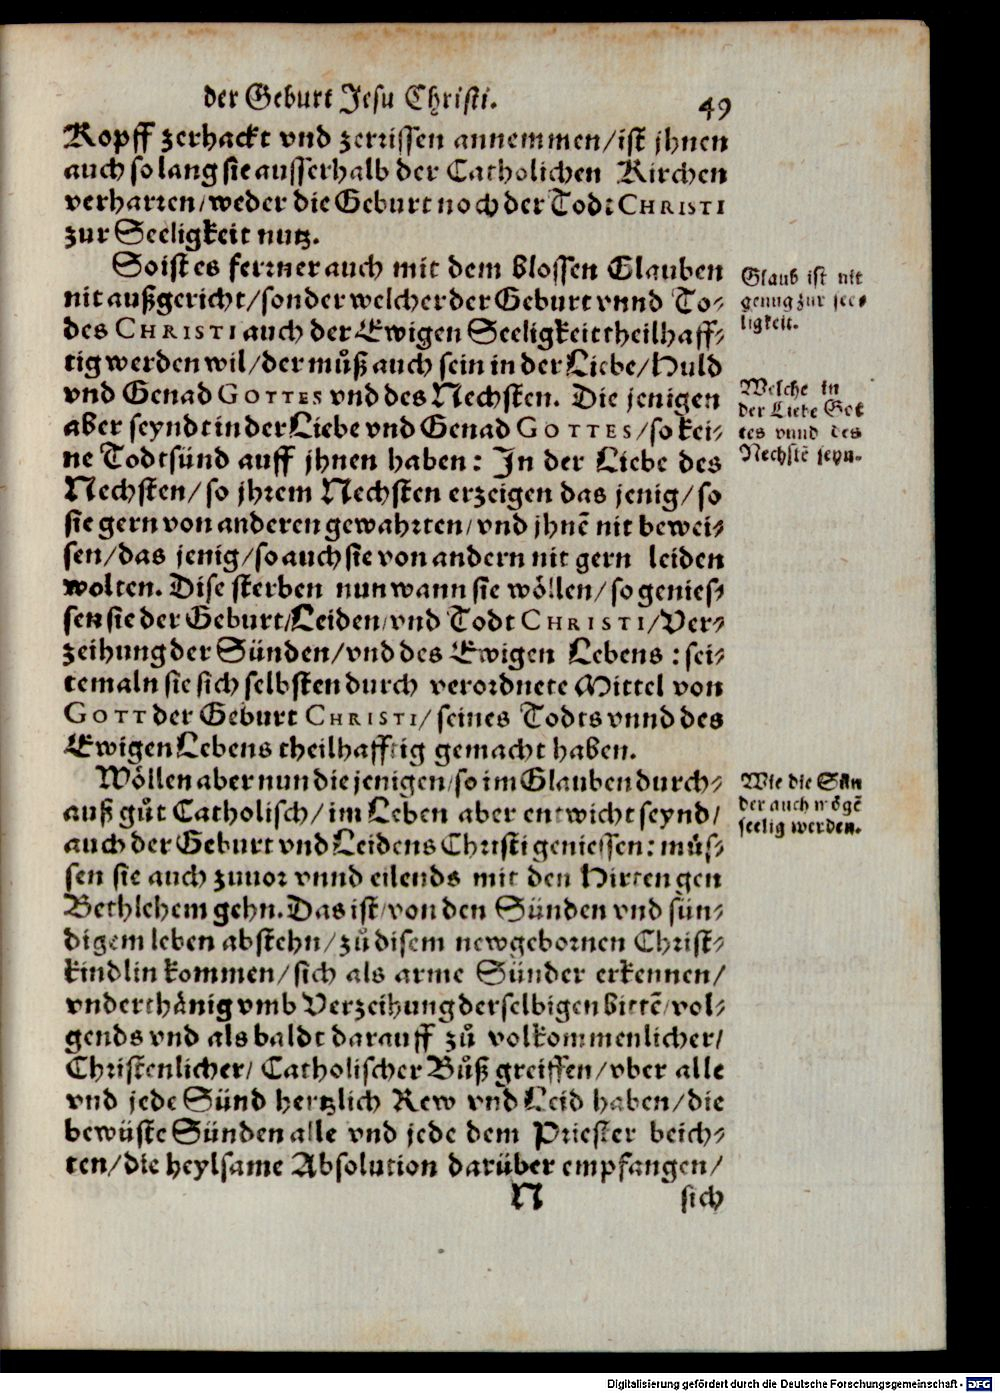 der Geburt Jesu Christi. 49
Kopff zerhackt vnd zerrissen annemmen/ist jhnen
auch so lang sie ausserhalb der Catholichen Kirchen
verharren/weder die Geburt noch der Todt CHRISTI
zur Seeligkeit nutz.
So ist es ferrner auch mit dem blossen Glauben
nit außgericht/sonder welcher der Geburt vnnd To-
des CHRISTI auch der Ewigen Seeligkeit theilhaff-
tig werden wil/der můß auch sein in der Liebe/Huld
vnd Genad GOTTES vnd des Nechsten. Die jenigen
aber seyndt in der Liebe vnd Genad GOTTES/so kei-
ne Todtsünd auff jhnen haben: In der Liebe des
Nechsten/so jhrem Nechsten erzeigen das jenig/so
sie gern von anderen gewahrten/vnd jhnē nit bewei-
sen/das jenig/so auch sie von andern nit gern leiden
wolten. Dise sterben nun wann sie wöllen/so genies-
sen sie der Geburt/Leiden/vnd Todt CHRISTI/Ver-
zeihung der Sünden/vnd des Ewigen Lebens: sei-
temaln sie sich selbsten durch verordnete Mittel von
GOTT der Geburt CHRISTI/seines Todts vnnd des
Ewigen Lebens theilhafftig gemacht haben.
Wöllen aber nun die jenigen/so im Glauben durch-
auß gůt Catholisch/im Leben aber entwicht seynd/
auch der Geburt vnd Leidens Christi geniessen: müs-
sen sie auch zuuor vnnd eilends mit den Hirten gen
Bethlehem gehn. Das ist/von den Sünden vnd sün-
digem leben abstehn/zů disem newgebornen Christ-
kindlin kommen/sich als arme Sünder erkennen/
vnderthänig vmb Verzeihung derselbigen bittē/vol-
gends vnd als baldt darauff zů volkommenlicher/
Christenlicher/Catholischer Bůß greiffen/vber alle
vnd jede Sünd hertzlich Rew vnd Leid haben/die
bewüste Sünden alle vnd jede dem Priester beich-
ten/die heylsame Absolution darüber empfangen/
N sich
Glaub ist nit
genug zur see-
ligkeit.
Welche in
der Liebe Got
tes vnnd des
Nechstē seyn.
Wie die Sün
der auch mögē
seelig werden.
Digitalisierung gefördert durch die Deutsche Forschungsgemeinschaft - DFG